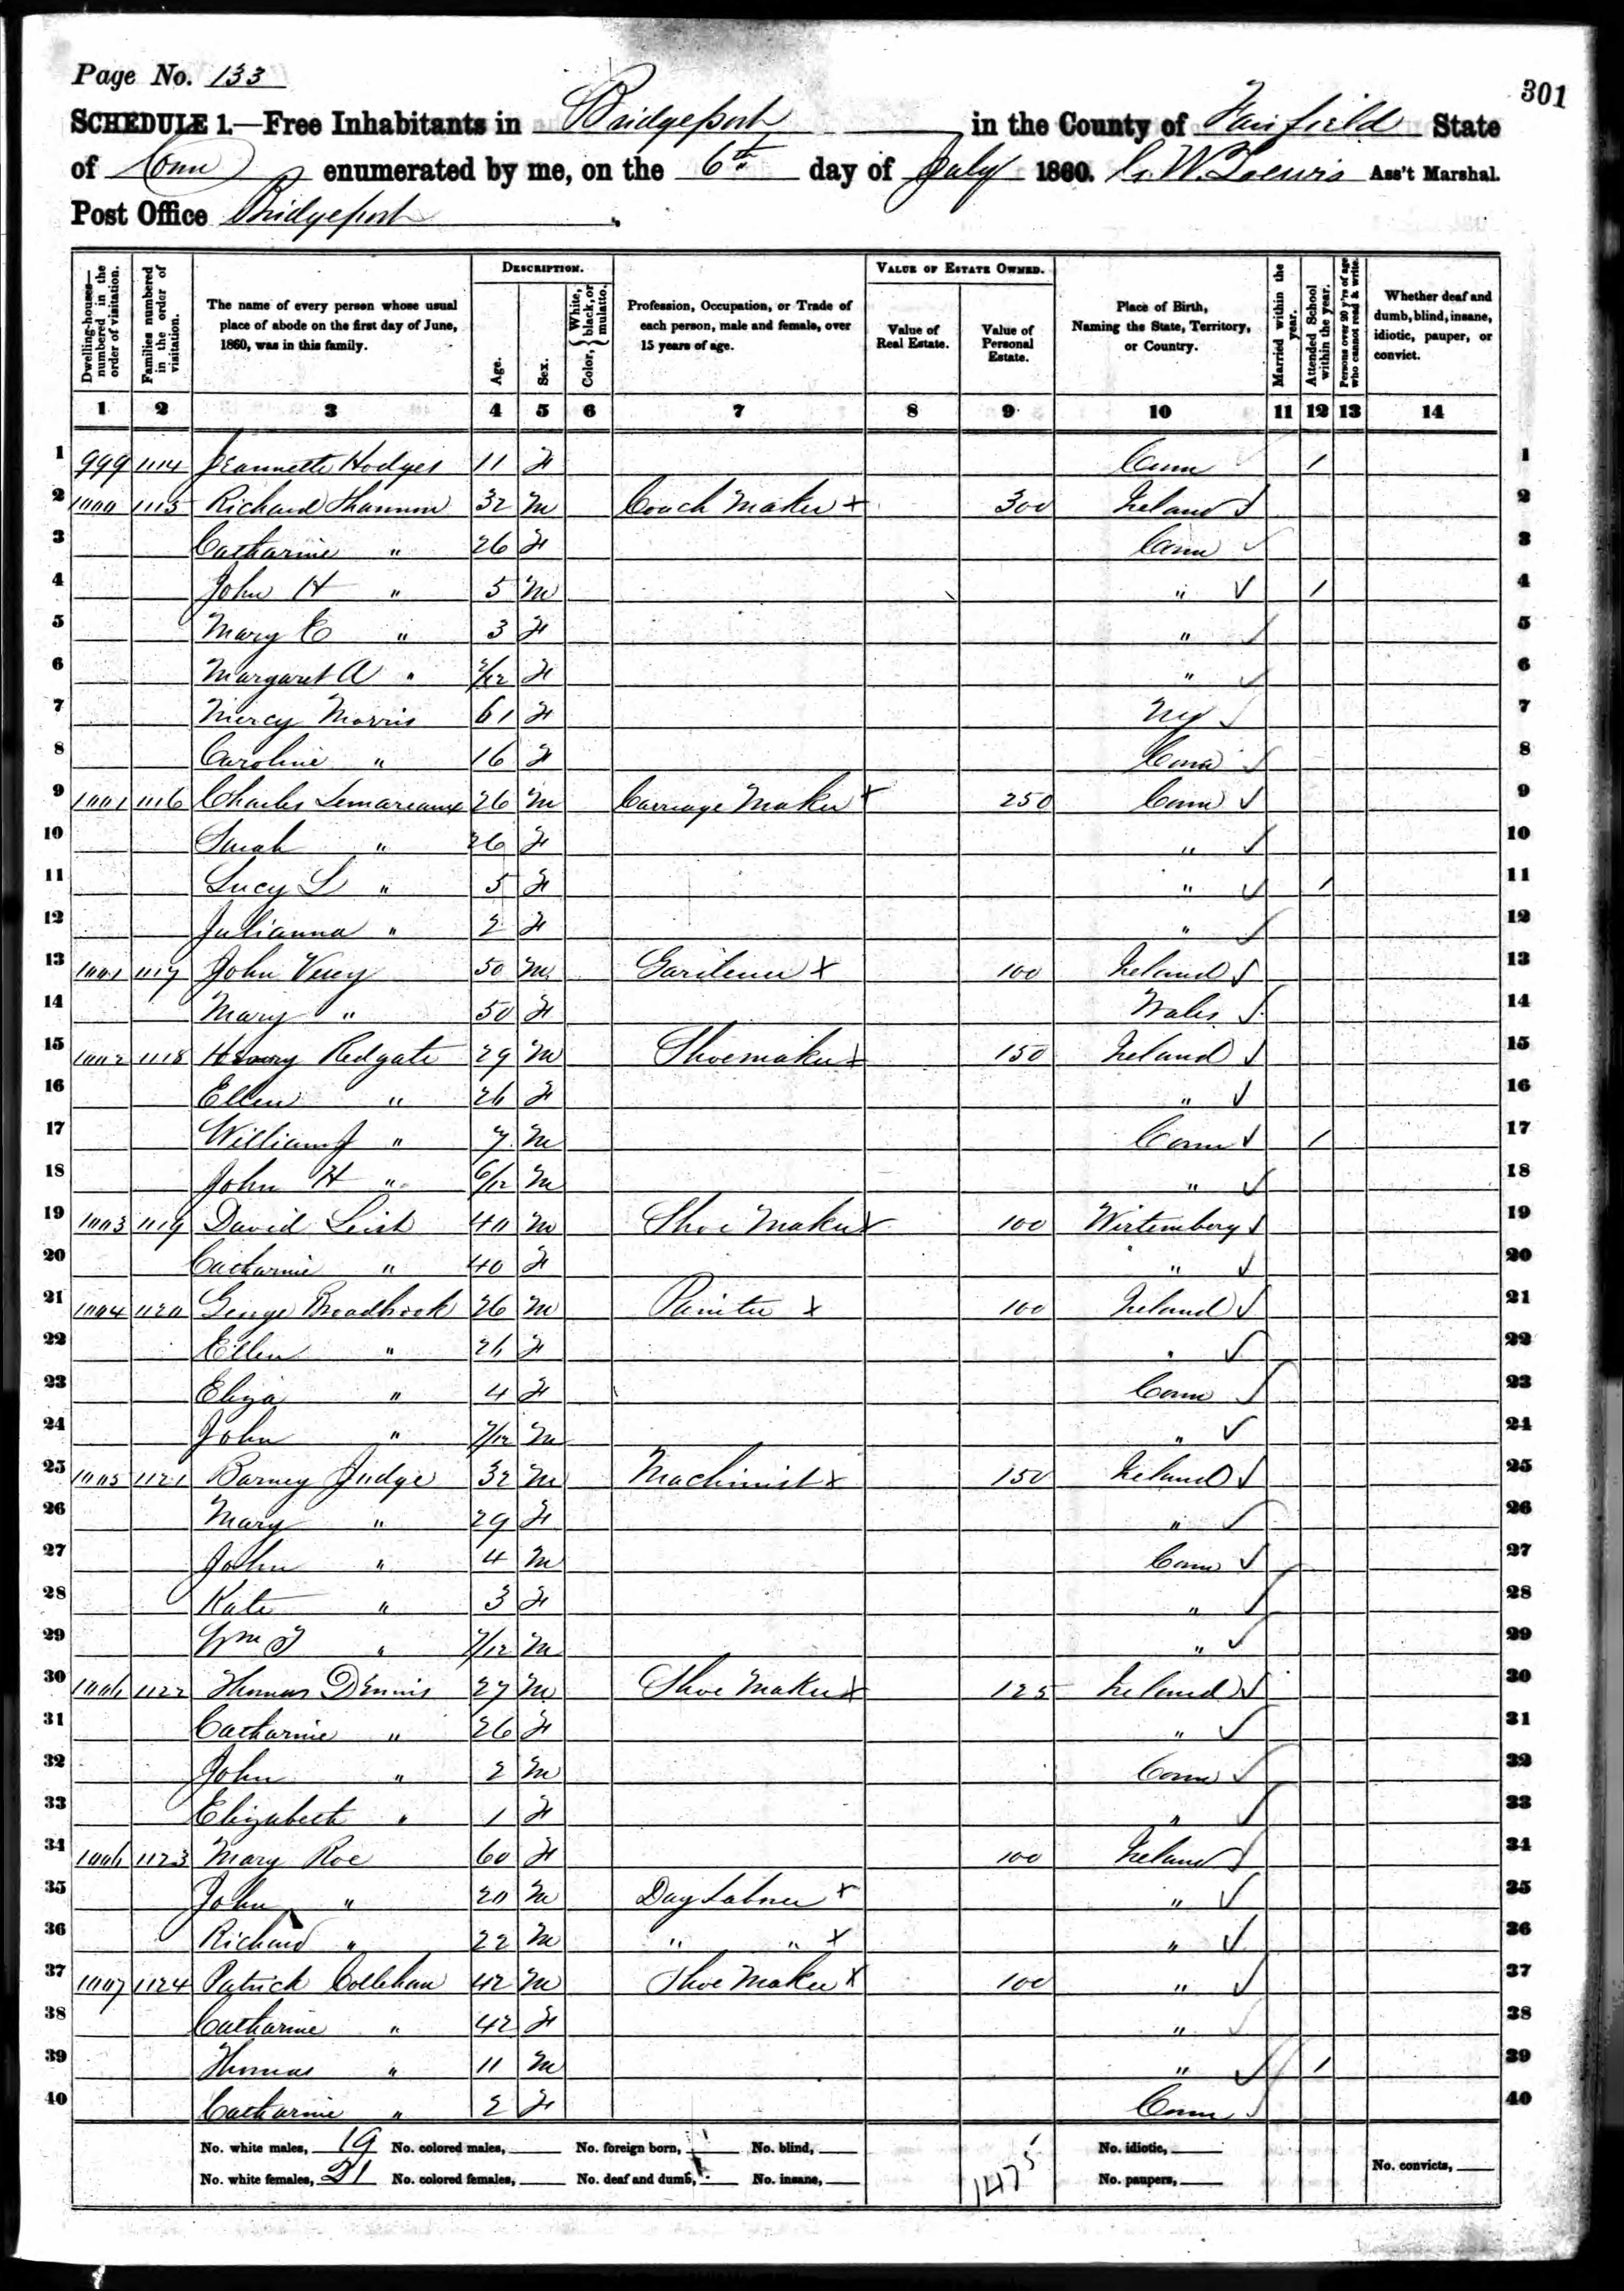 Page No. 133
301
SCHEDULE 1.—Free Inhabitants in Bridgeport in the County of Fairfield State
of Conn enumerated by me, on the 6th day of July 1860. W. Lewis Ass't Marshal.
Post Office Bridgeport.
DESCRIPTION. VALUE OF ESTATE OWNED.
Dwelling-houses—numbered in the order of visitation. Families numbered in the order of visitation. The name of every person whose usual place of abode on the first day of June, 1860, was in this family. Age. Sex. Color, { White, black, or mulatto. Profession, Occupation, or Trade of each person, male and female, over 15 years of age. Value of Real Estate. Value of Personal Estate. Place of Birth, Naming the State, Territory, or Country. Married within the year. Attended School within the year. Persons over 20 y'rs of age who cannot read & write. Whether deaf and dumb, blind, insane, idiotic, pauper, or convict.
1 2 3 4 5 6 7 8 9 10 11 12 13 14
1 999 1114 Jeannette Hodges 11 F Conn / 1
2 1000 1115 Richard Shannon 32 M Coach Maker x 300 Ireland ✓ 2
3 Catharine " 26 F Conn ✓ 3
4 John H " 5 M " ✓ / 4
5 Mary E " 3 F " ✓ 5
6 Margaret A " /12 F " ✓ 6
7 Mercy Morris 61 F NY ✓ 7
8 Caroline " 16 F Conn ✓ 8
9 1001 1116 Charles Lemareaux 26 M Carriage Maker x 250 Conn ✓ 9
10 Sarah " 26 F " ✓ 10
11 Lucy L " 5 F " ✓ / 11
12 Julianna " 2 F " ✓ 12
13 1001 1117 John 50 M Gardener x 100 Ireland ✓ 13
14 Mary " 50 F Wales ✓ 14
15 1002 1118 Henry Redgate 29 M Shoemaker x 150 Ireland ✓ 15
16 Ellen " 26 F " ✓ 16
17 William J " 7 M Conn ✓ / 17
18 John H " 6/12 M " ✓ 18
19 1003 1119 David 40 M Shoe Maker x 100 Wirtemberg ✓ 19
20 Catharine " 40 F " ✓ 20
21 1004 1120 George Broadbrook 26 M Painter x 100 Ireland ✓ 21
22 Ellen " 26 F " ✓ 22
23 Eliza " 4 F Conn ✓ 23
24 John " 7/12 M " ✓ 24
25 1005 1121 Barney Judge 32 M Machinist x 150 Ireland ✓ 25
26 Mary " 29 F " ✓ 26
27 John " 4 M Conn ✓ 27
28 Kate " 3 F " ✓ 28
29 Wm " 7/12 M " ✓ 29
30 1006 1122 Thomas Dennis 27 M Shoe Maker x 125 Ireland ✓ 30
31 Catharine " 26 F " ✓ 31
32 John " 2 M Conn ✓ 32
33 Elizabeth " 1 F " ✓ 33
34 1006 1123 Mary Roe 60 F 100 Ireland ✓ 34
35 John " 20 M Day Laborer x " ✓ 35
36 Richard " 22 M " " x " ✓ 36
37 1007 1124 Patrick Collehan 42 M Shoe Maker x 100 " ✓ 37
38 Catharine " 42 F " ✓ 38
39 Thomas " 11 M " ✓ / 39
40 Catharine " 2 F Conn ✓ 40
No. white males, 19 No. colored males, No. foreign born, No. blind, No. idiotic,
No. white females, 21 No. colored females, No. deaf and dumb, No. insane, 1475 No. paupers, No. convicts,